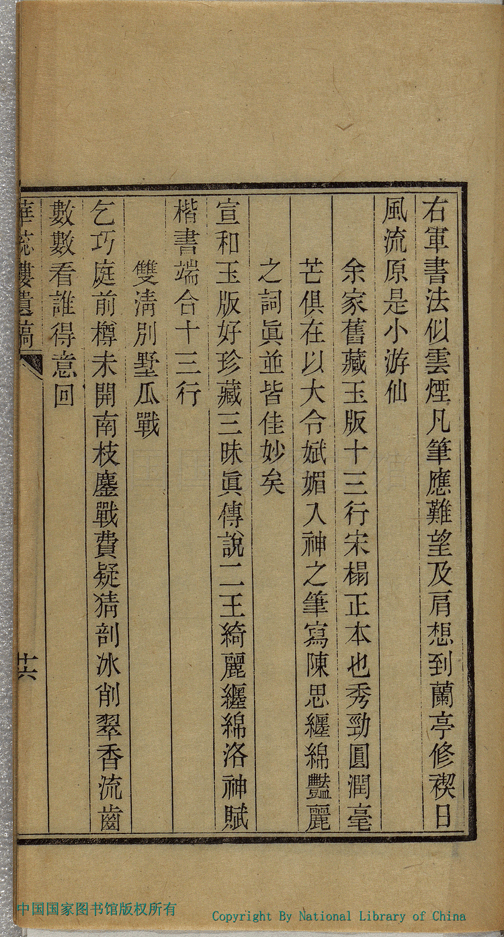 右軍書法似雲煙凡筆應難望及肩想到蘭亭修禊日
風流原是小游仙
余家舊藏玉版十三行宋榻正本也秀勁圓潤毫
芒俱在以大令娬媚入神之筆寫陳思纏綿豔麗
之詞眞並皆佳妙矣
宣和玉版好珍藏三昧眞傳說二王綺麗纏綿洛神賦
楷書端合十三行
雙淸別墅瓜戰
乞巧庭前樽未開南枝鏖戰費疑猜剖冰削翠香流齒
數數看誰得意回
遺稿
中国国家图书馆版权所有
Copyright By National Library of China